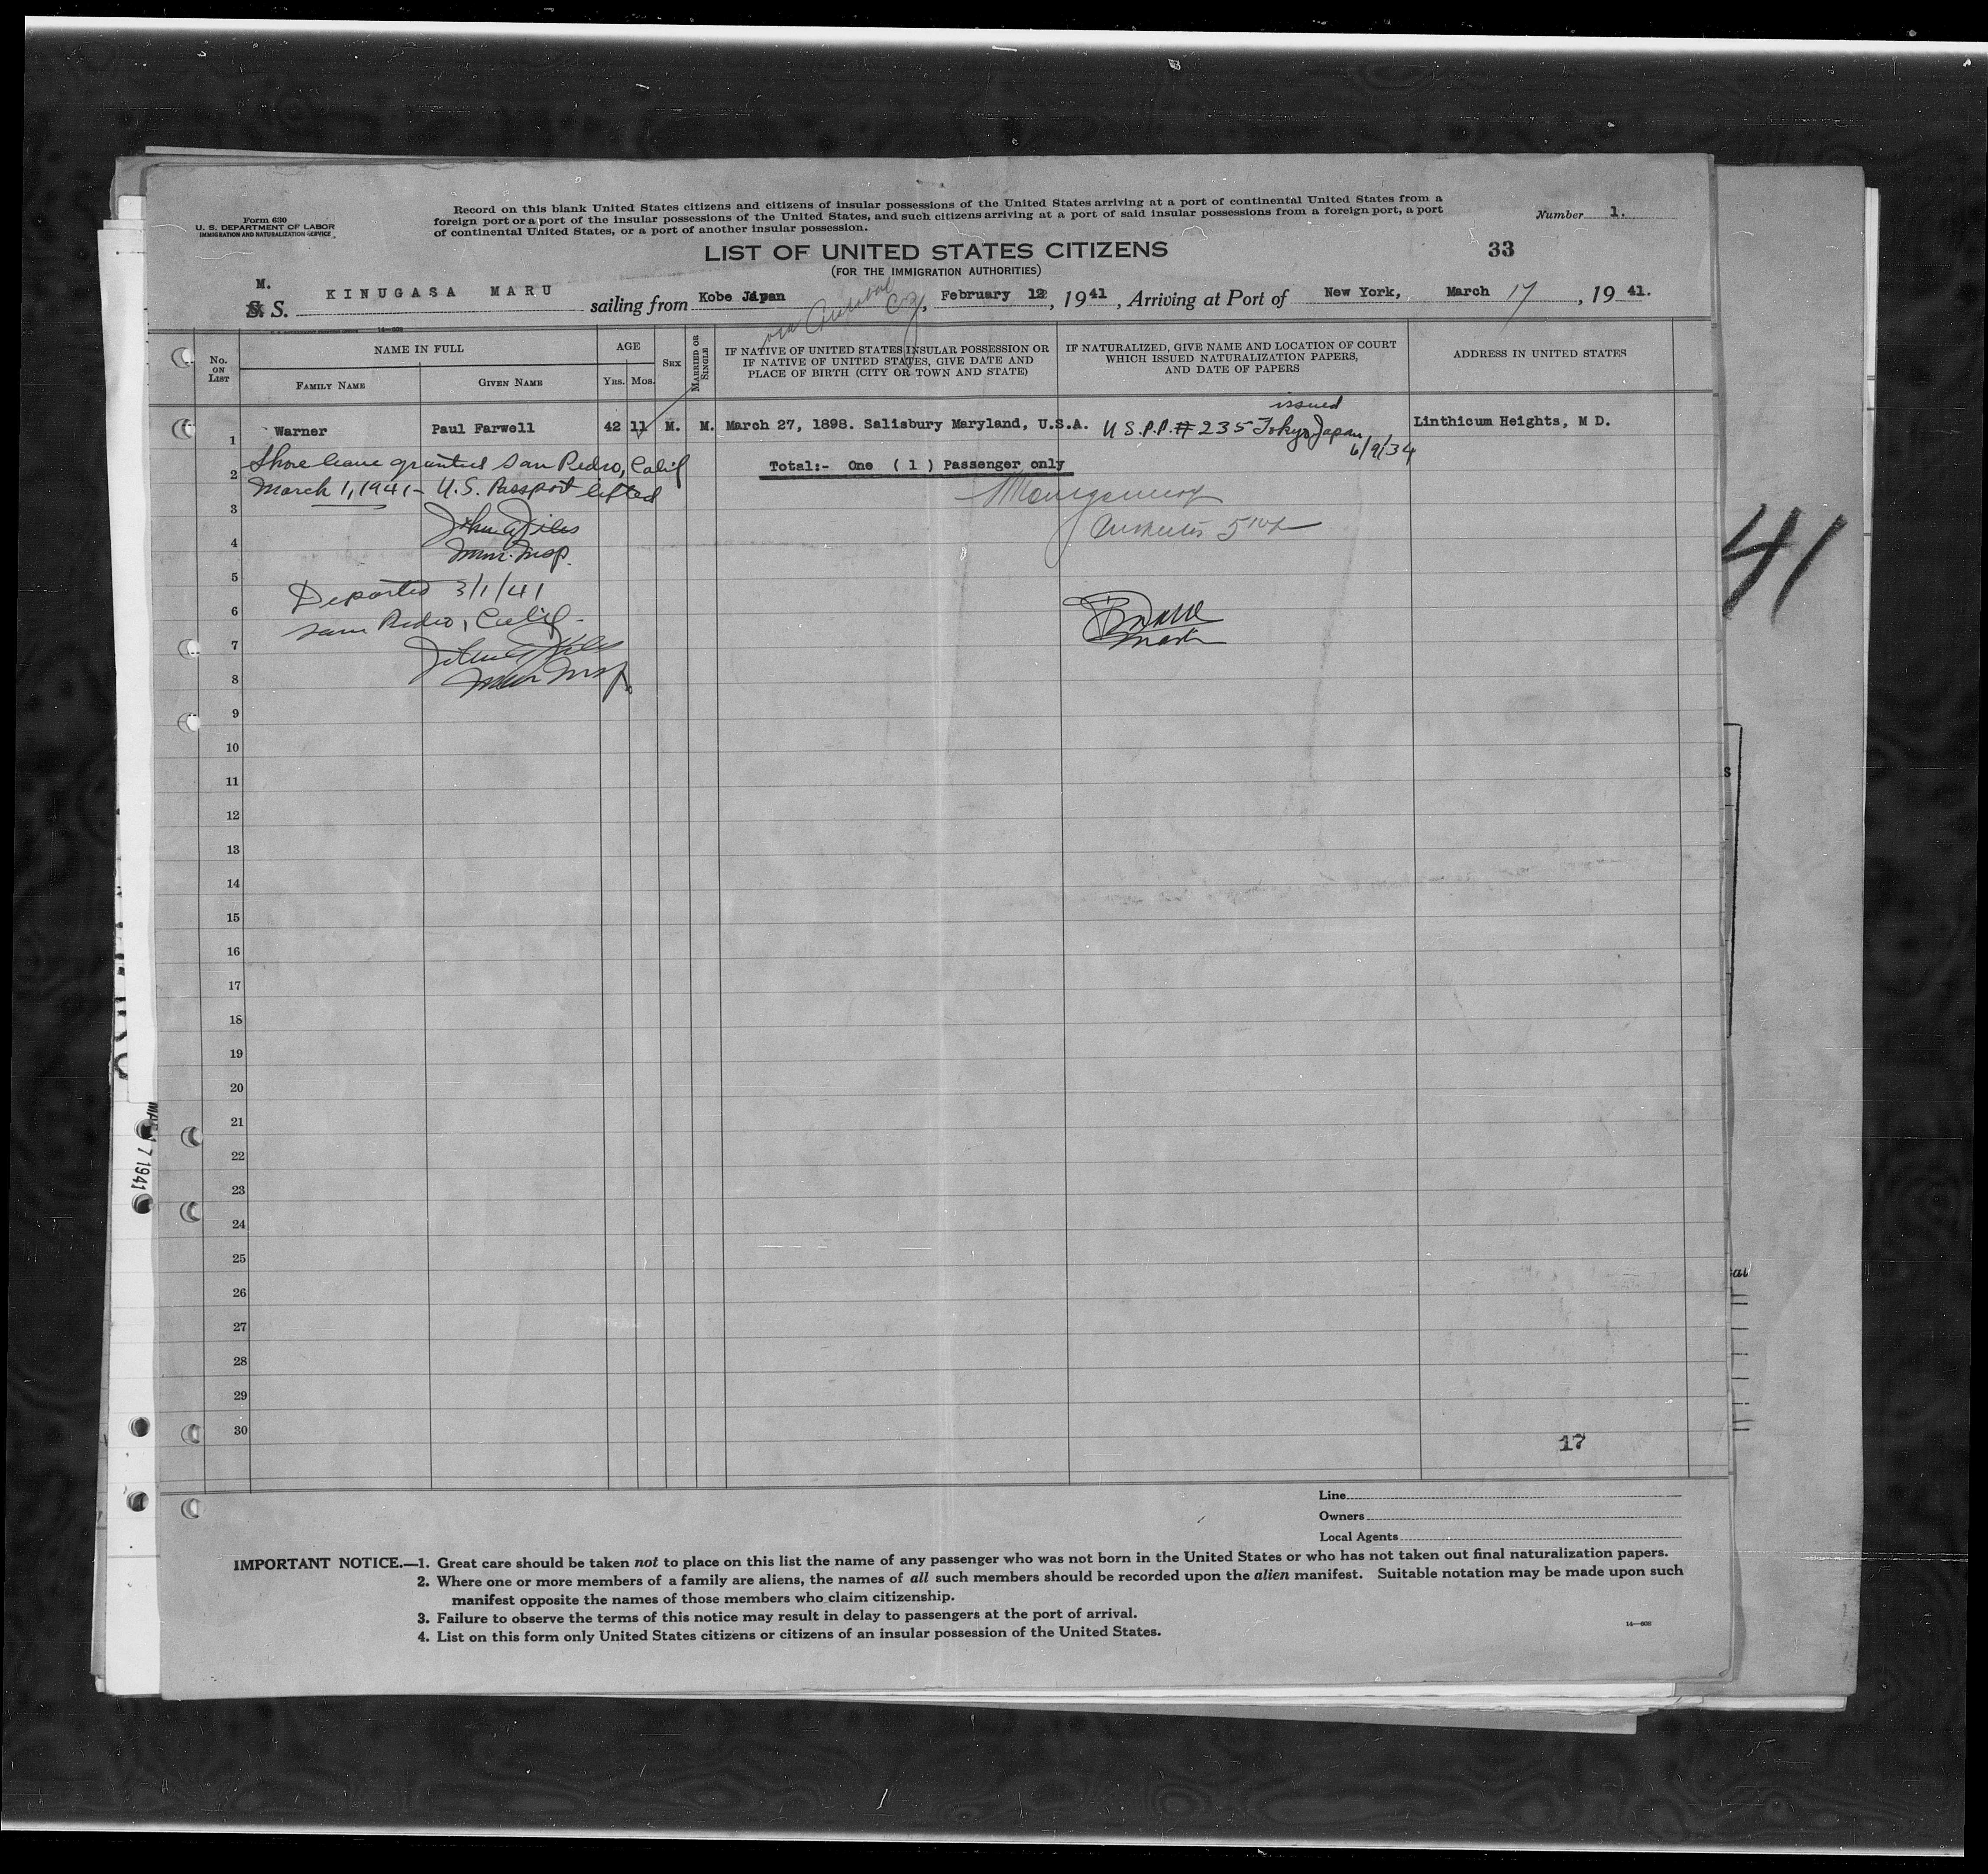 Form 630
U. S. DEPARTMENT OF LABOR
IMMIGRATION AND NATURALIZATION SERVICE
Record on this blank United States citizens and citizens of insular possessions of the United States arriving at a port of continental United States from a
foreign port or a port of the insular possessions of the United States, and such citizens arriving at a port of said insular possessions from a foreign port, a port
of continental United States, or a port of another insular possession.
Number 1.
LIST OF UNITED STATES CITIZENS
33
(FOR THE IMMIGRATION AUTHORITIES)
M.
S. S. KINUGASA MARU sailing from Kobe Japan, February 12, 1941, Arriving at Port of New York, March 17, 1941.
via Cristobal CZ
14—608
No. ON LIST
NAME IN FULL
FAMILY NAME
GIVEN NAME
AGE
YRS.
MOS.
SEX
MARRIED OR SINGLE
IF NATIVE OF UNITED STATES INSULAR POSSESSION OR
IF NATIVE OF UNITED STATES, GIVE DATE AND
PLACE OF BIRTH (CITY OR TOWN AND STATE)
IF NATURALIZED, GIVE NAME AND LOCATION OF COURT
WHICH ISSUED NATURALIZATION PAPERS,
AND DATE OF PAPERS
ADDRESS IN UNITED STATES
issued
1 Warner Paul Farwell 42 11 M. M. March 27, 1898. Salisbury Maryland, U.S.A. U S.P.P. # 235 Tokyo Japan Linthicum Heights, M D.
6/9/34
Shore leave granted San Pedro, Calif
2 Total:- One ( 1 ) Passenger only
March 1, 1941 - U.S. Passport lifted
Montgomery
3
John
4
Imm. Insp.
5
Departed 3/1/41
6
San Pedro, Calif.
7
John
8
Imm Insp.
9
10
11
12
13
14
15
16
17
18
19
20
21
22
23
24
25
26
27
28
29
30
17
41
MAR 17 1941
Line
Owners
Local Agents
IMPORTANT NOTICE.—1. Great care should be taken not to place on this list the name of any passenger who was not born in the United States or who has not taken out final naturalization papers.
2. Where one or more members of a family are aliens, the names of all such members should be recorded upon the alien manifest. Suitable notation may be made upon such
manifest opposite the names of those members who claim citizenship.
3. Failure to observe the terms of this notice may result in delay to passengers at the port of arrival.
4. List on this form only United States citizens or citizens of an insular possession of the United States.
14—608